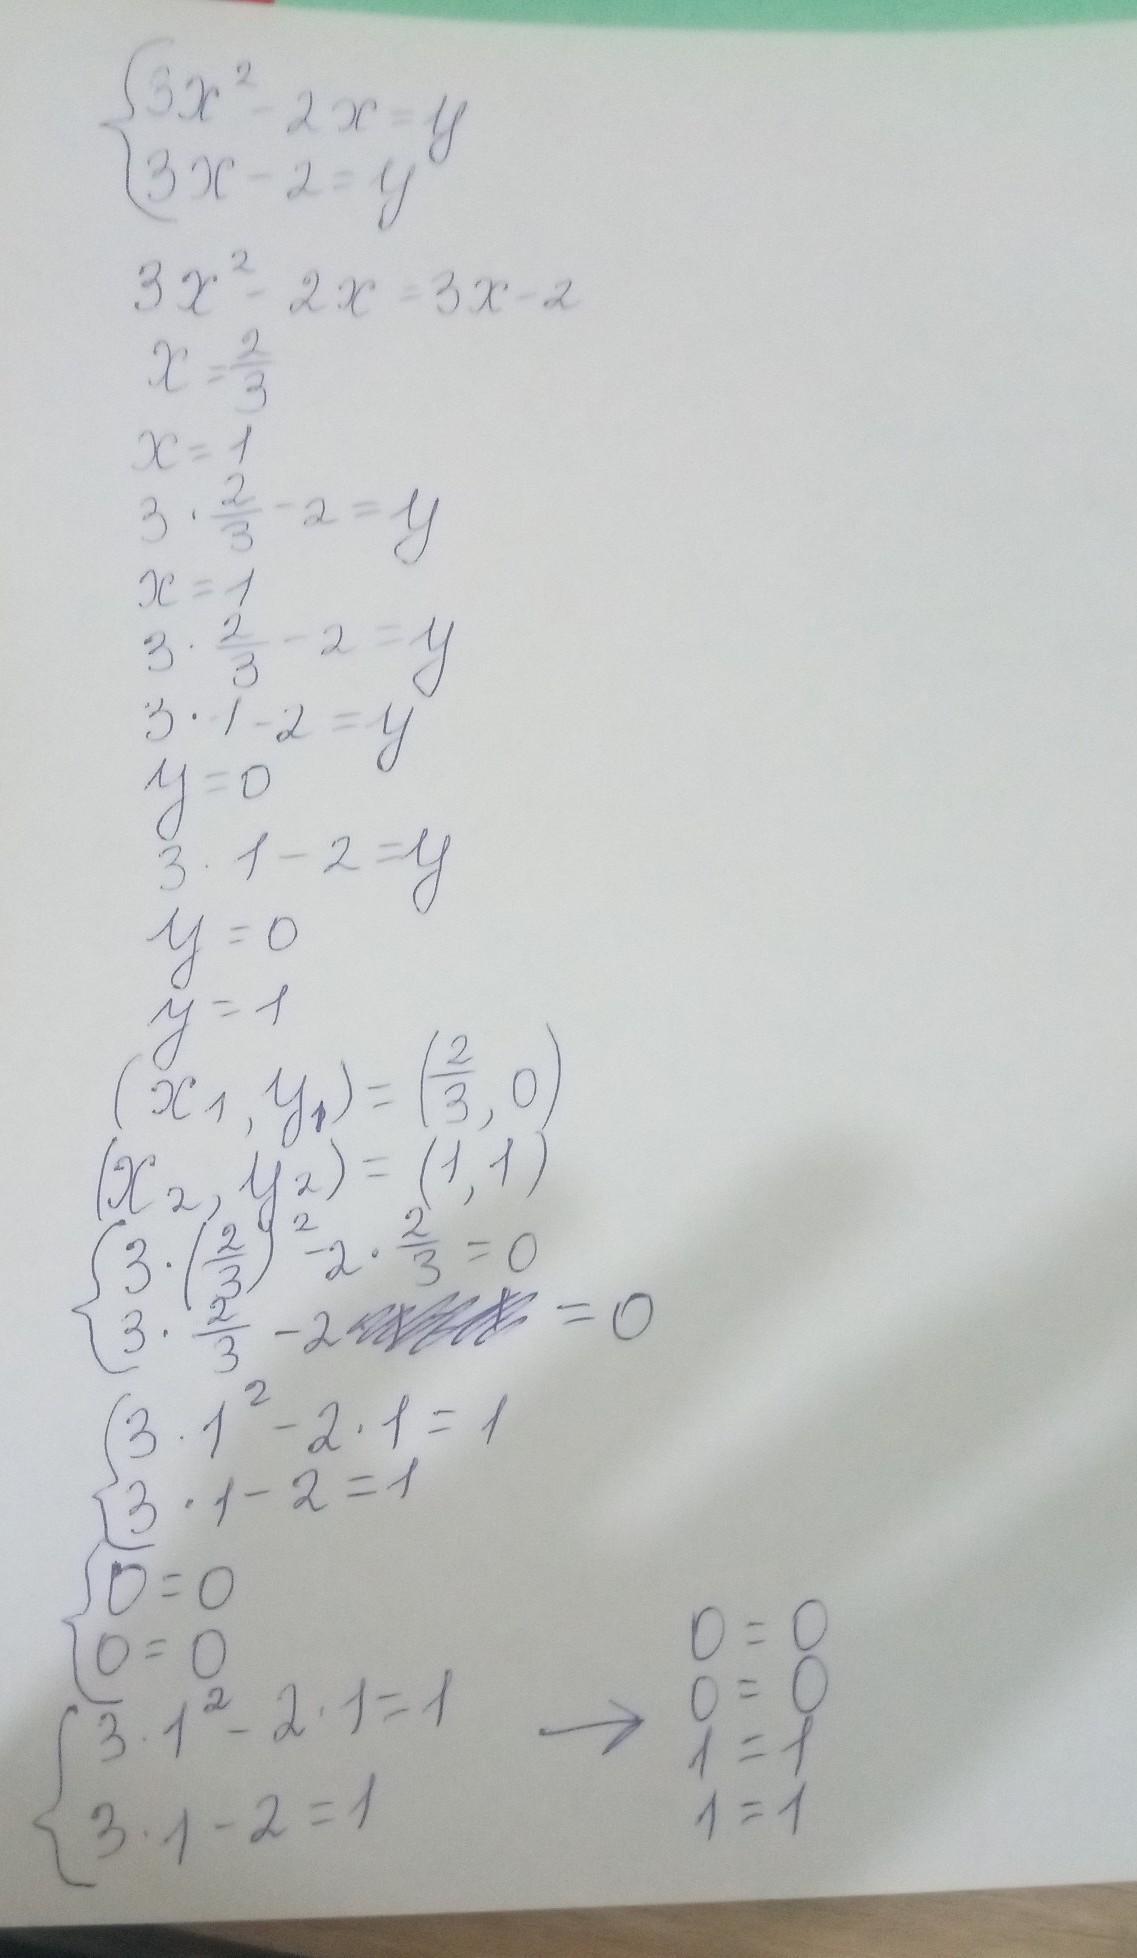 {3x² - 2x = y
{3x - 2 = y
3x² - 2x = 3x - 2
x = 2/3
x = 1
3 · 2/3 - 2 = y
x = 1
3 · 2/3 - 2 = y
3 · 1 - 2 = y
y = 0
3 · 1 - 2 = y
y = 0
y = 1
(x₁, y₁) = (2/3, 0)
(x₂, y₂) = (1, 1)
{3 · (2/3)² - 2 · 2/3 = 0
{3 · 2/3 - 2 = 0
{3 · 1² - 2 · 1 = 1
{3 · 1 - 2 = 1
{0 = 0
{0 = 0
{3 · 1² - 2 · 1 = 1
{3 · 1 - 2 = 1
→
0 = 0
0 = 0
1 = 1
1 = 1